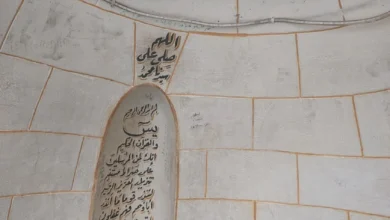 اللهم
صلي على
سيدنا محمد
بسم الله الرحمن الرحيم
يس
والقرآن الحكيم
إنك لمن المرسلين
على صراط مستقيم
تنزيل العزيز الرحيم
لتنذر قوما ما أنذر
آباؤهم فهم غافلون